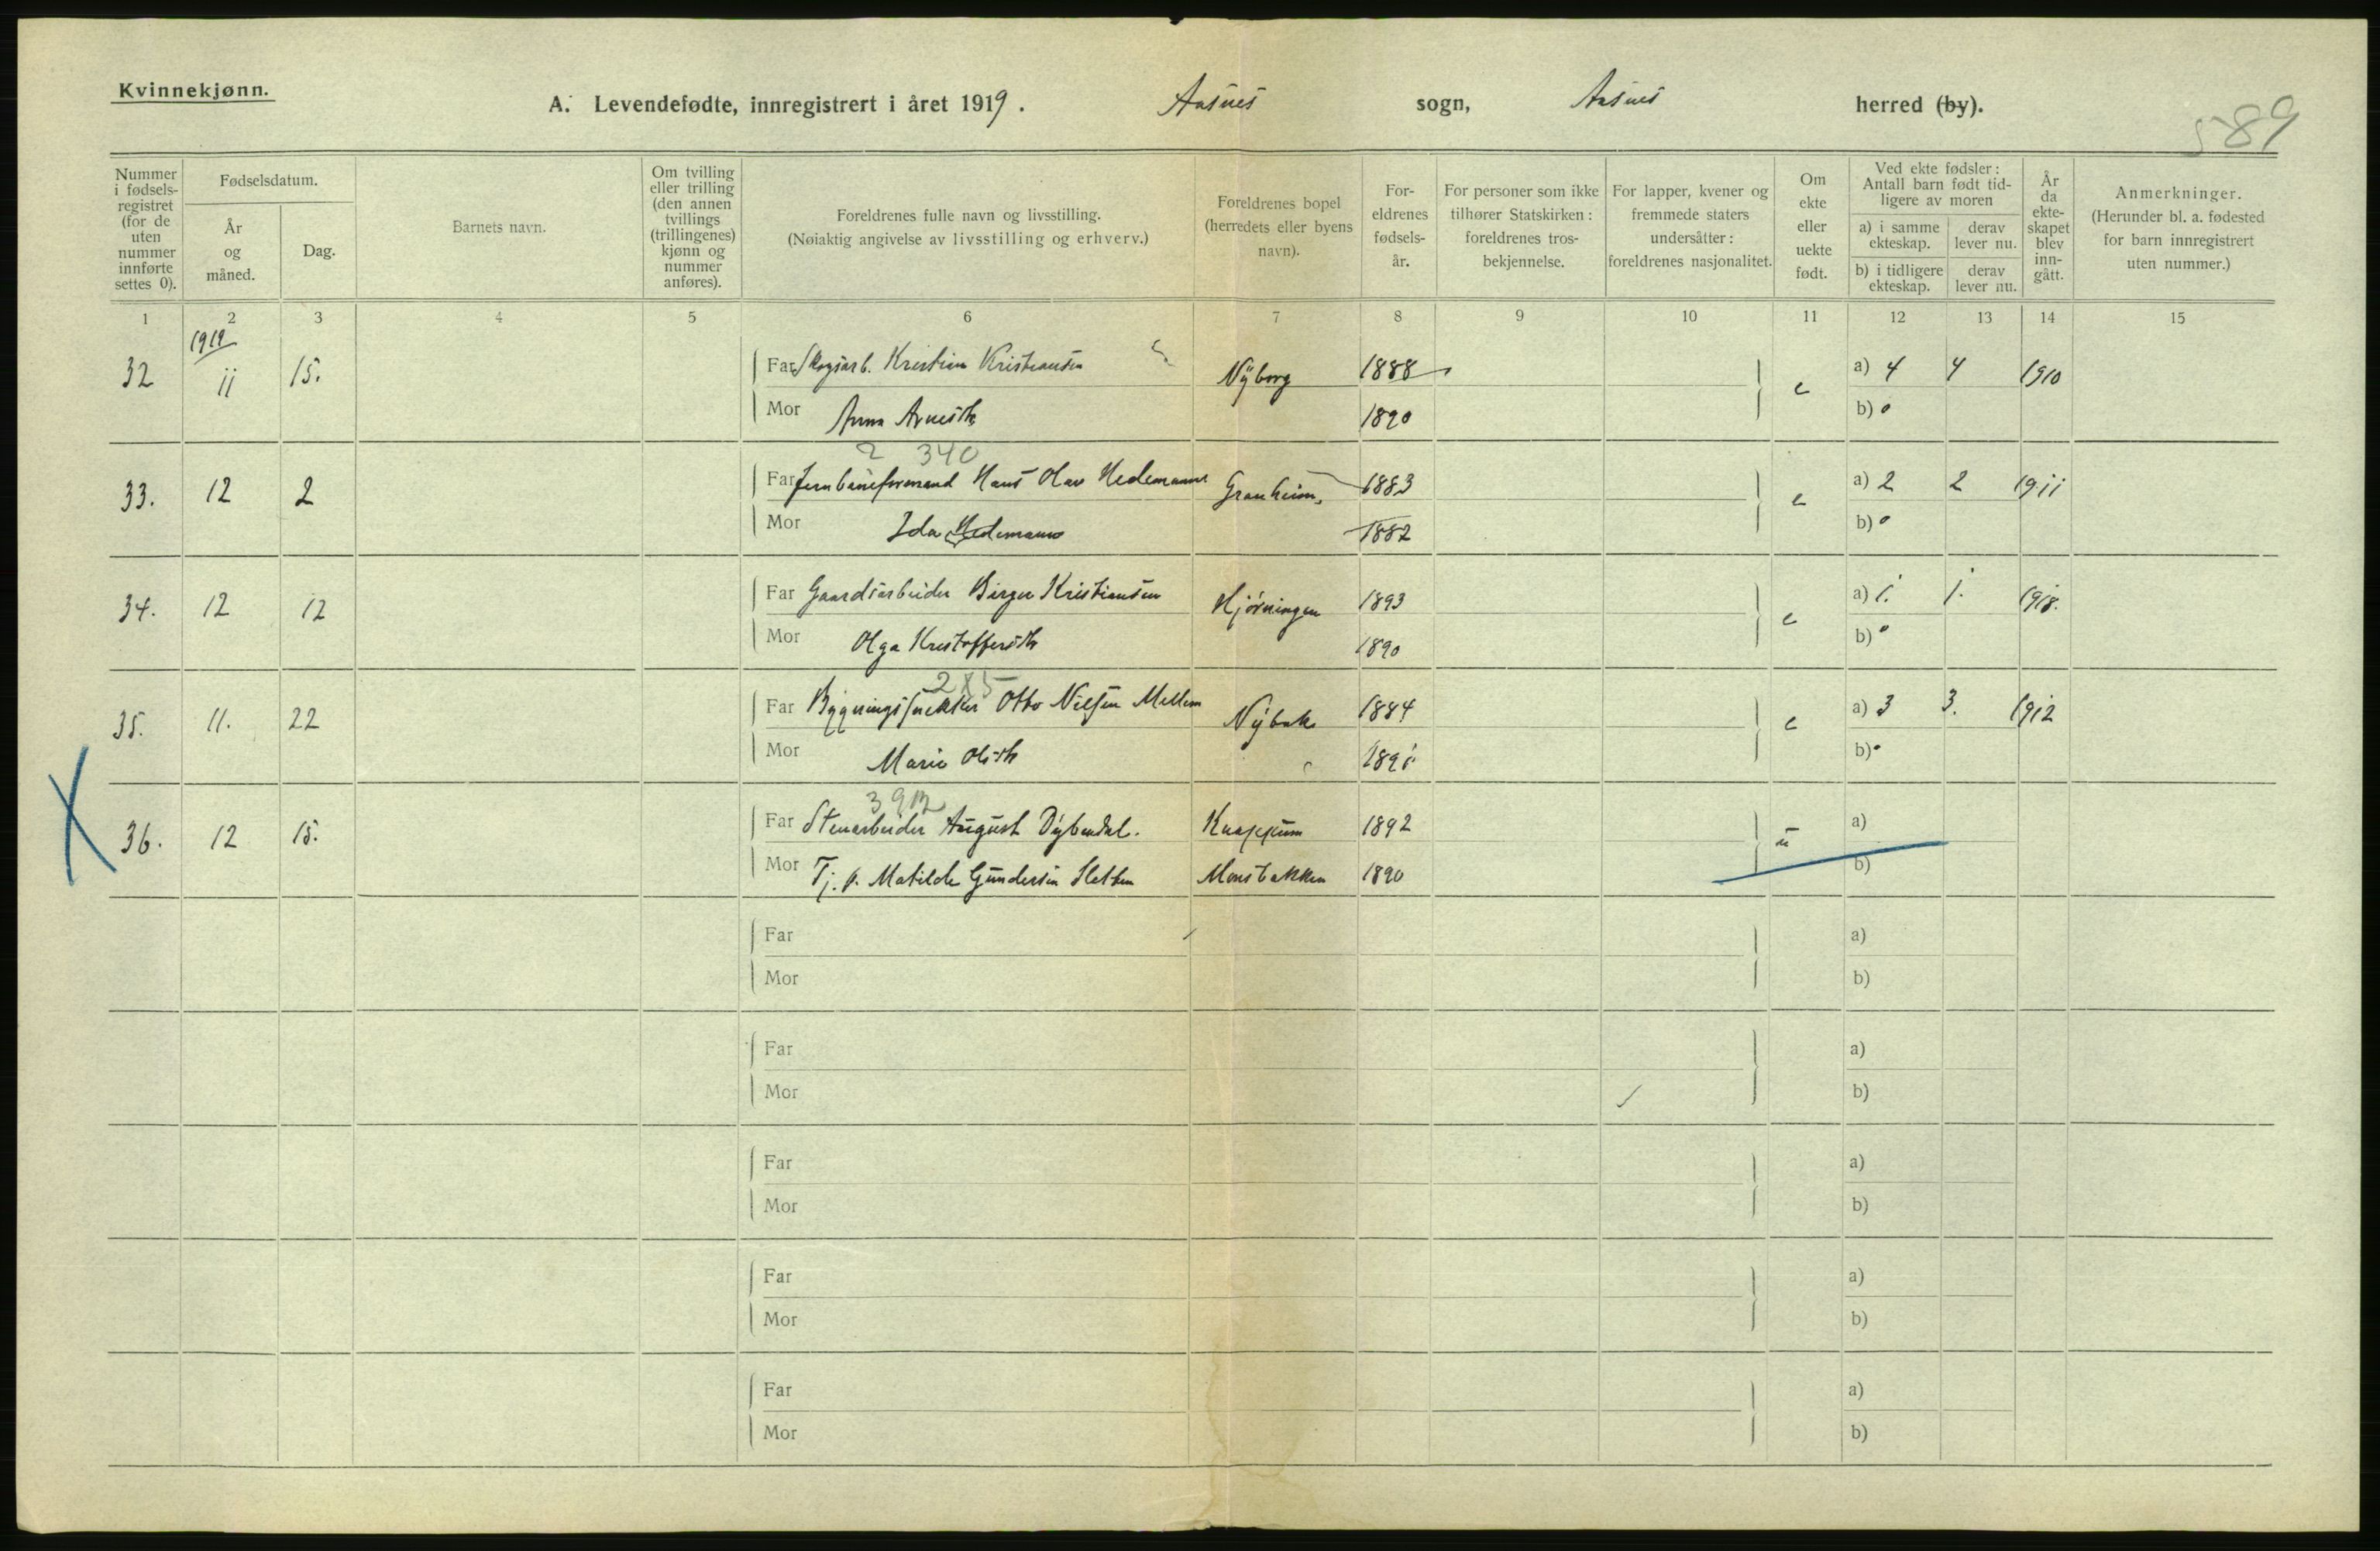 Kvinnekjønn.
A. Levendefødte, innregistrert i året 1919. Aasnes sogn, Aasnes herred (by).
589
Nummer i fødsels-registret (for de uten nummer innførte settes 0).
Fødselsdatum.
År og måned.
Dag.
Barnets navn.
Om tvilling eller trilling (den annen tvillings (trillingenes) kjønn og nummer anføres).
Foreldrenes fulle navn og livsstilling.
(Nøiaktig angivelse av livsstilling og erhverv.)
Foreldrenes bopel (herredets eller byens navn).
For-eldrenes fødsels-år.
For personer som ikke tilhører Statskirken: foreldrenes tros-bekjennelse.
For lapper, kvener og fremmede staters undersåtter: foreldrenes nasjonalitet.
Om ekte eller uekte født.
Ved ekte fødsler: Antall barn født tid-ligere av moren
a) i samme ekteskap.
derav lever nu.
b) i tidligere ekteskap.
derav lever nu.
År da ekte-skapet blev inn-gått.
Anmerkninger.
(Herunder bl. a. fødested for barn innregistrert uten nummer.)
1 2 3 4 5 6 7 8 9 10 11 12 13 14 15
1919
32 11 15. Far Skogsarb. Kristian Kristiansen Nyborg 1888 e a) 4 4 1910
Mor Anna Arnesdtr 1890 b) 0
2 340
33. 12 2 Far Jernbaneformand Hans Olav Hedemann Granheim 1883 e a) 2 2 1911
Mor Ida Hedemann 1882 b) 0
34. 12 12 Far Gaardsarbeider Birger Kristiansen Hjørningen 1893 e a) 1. 1. 1918.
Mor Olga Kristoffersdtr 1890 b) 0
285
35. 11. 22 Far Bygningssnekker Otto Nilsen Mellem Nybak 1884 e a) 3 3. 1912
Mor Marie Olsdtr 1891 b) 0
36. 12 15. Far Stenarbeider August Dybendal. Knappum 1892 u a)
Mor Tj. p. Matilde Gundersen Sletten Monsbakken 1890 b)
Far a)
Mor b)
Far a)
Mor b)
Far a)
Mor b)
Far a)
Mor b)
Far a)
Mor b)